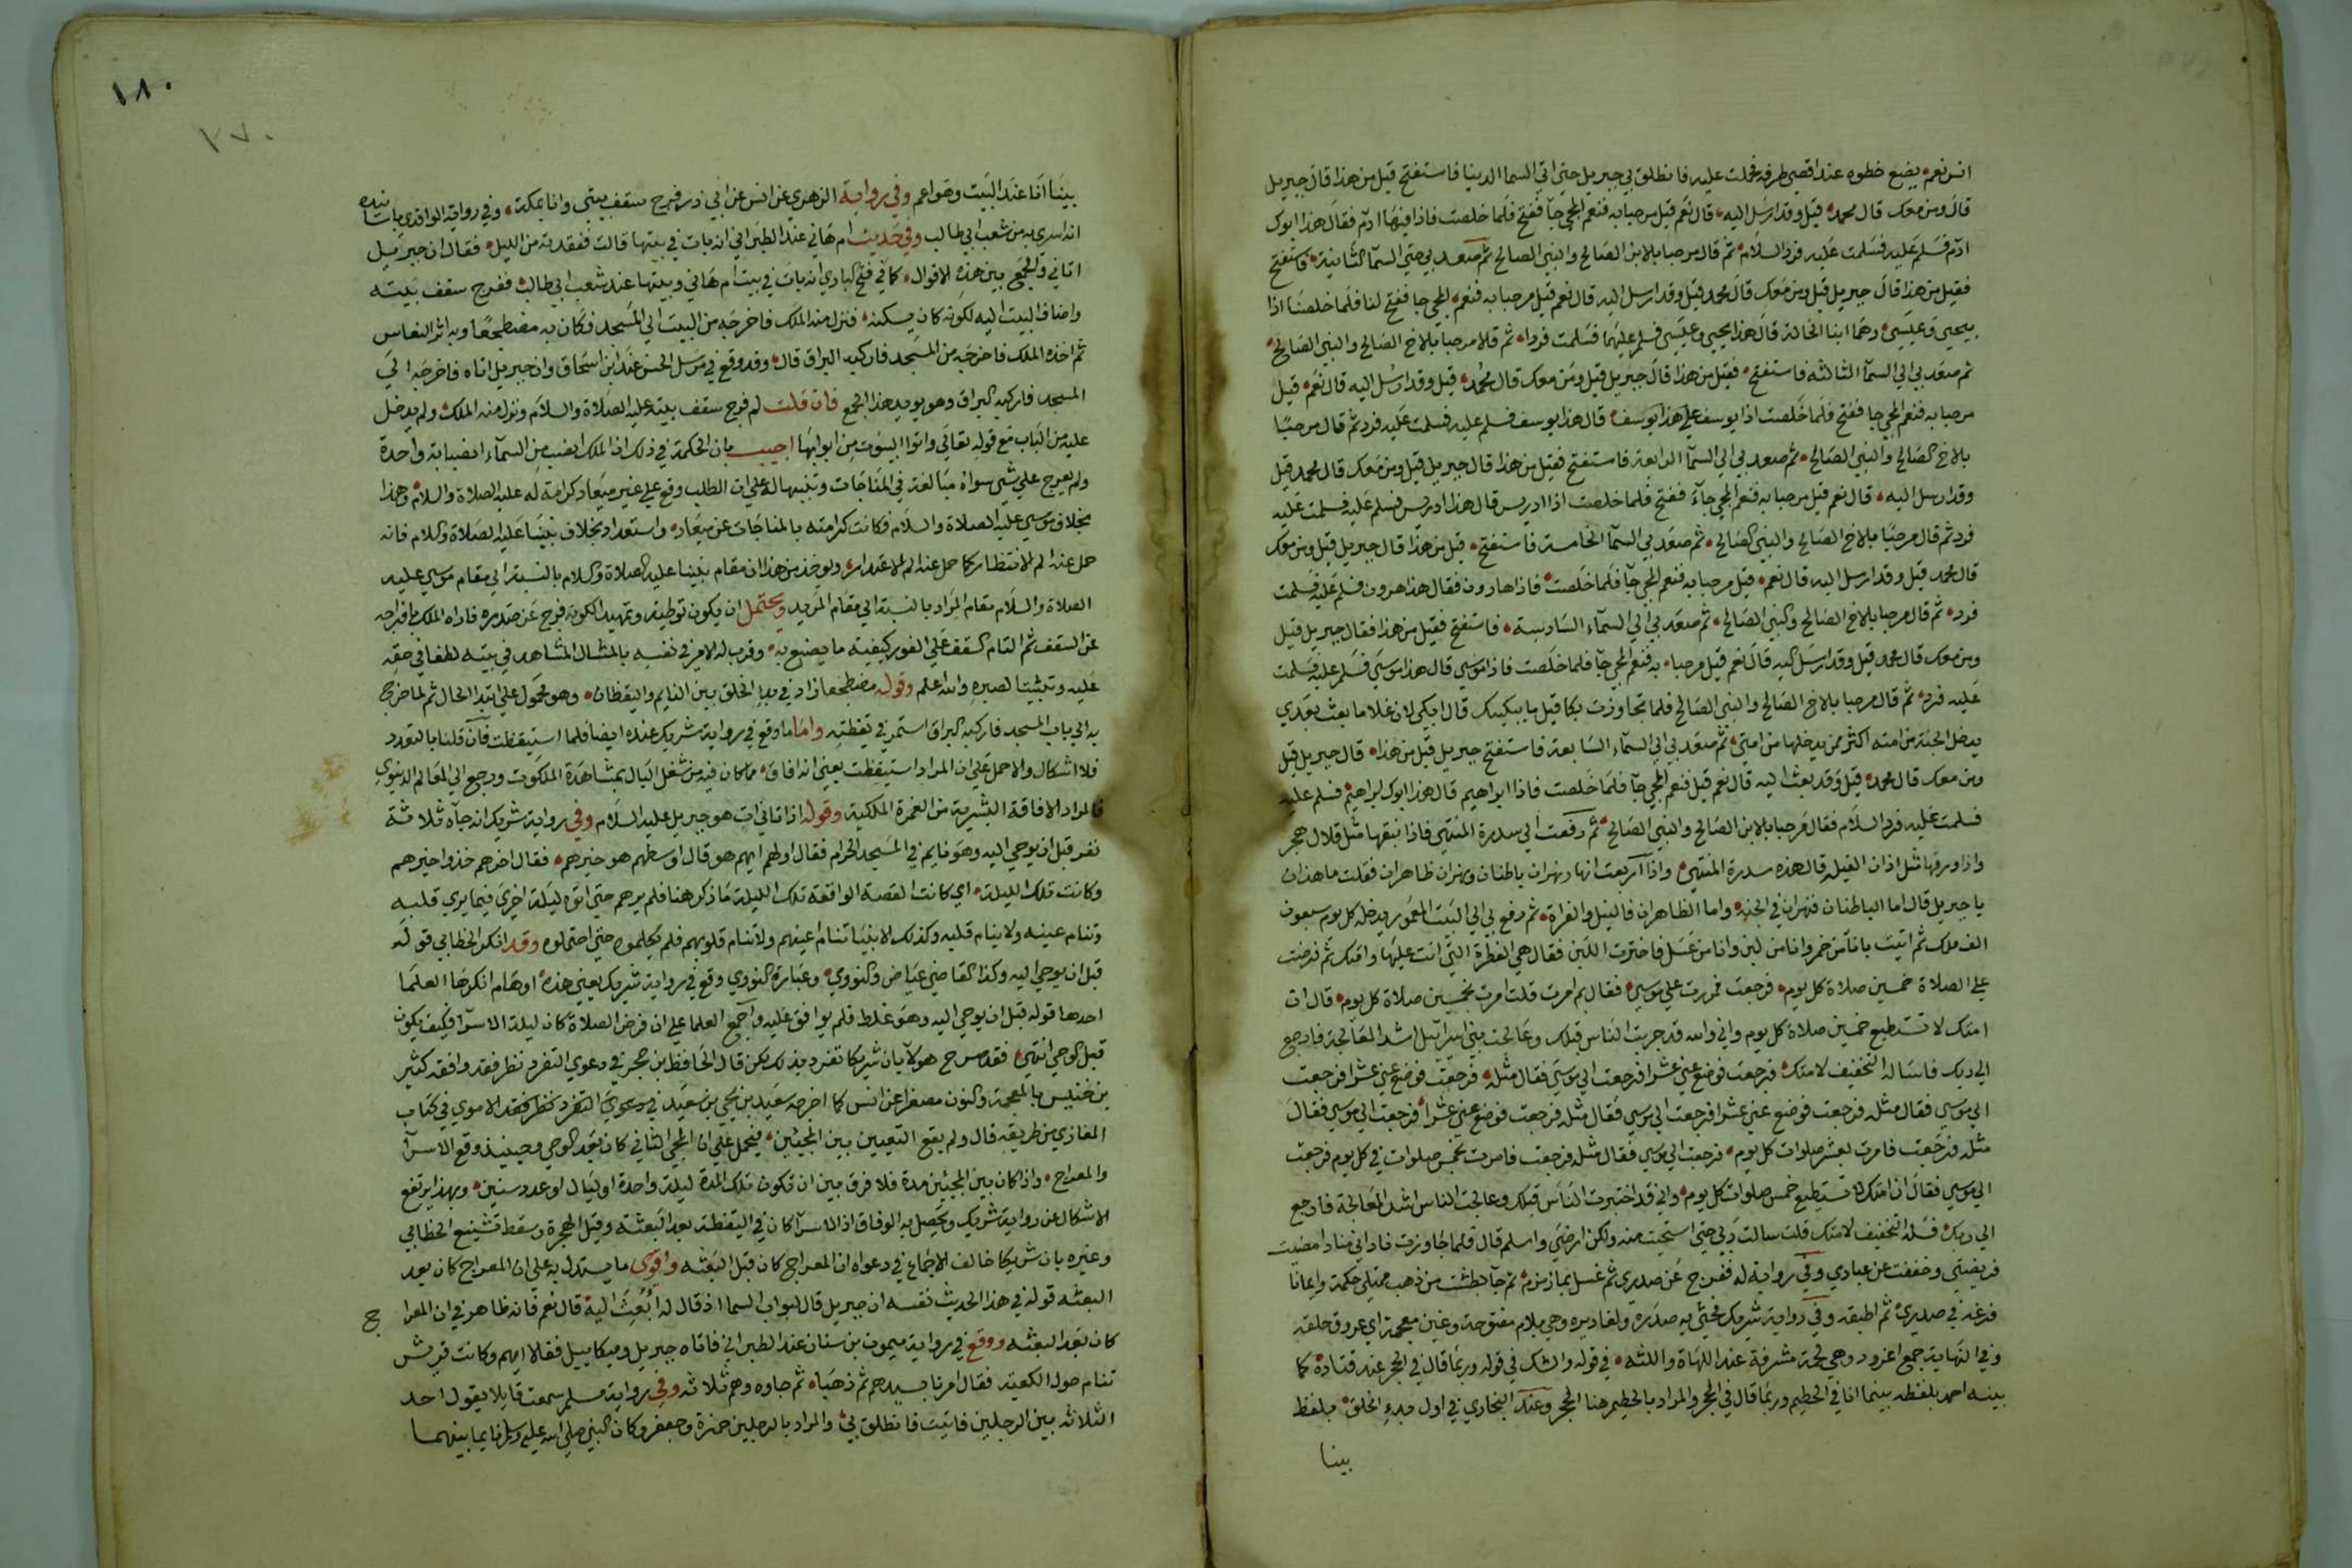 انس نعم يضع خطوه عند اقصي طرفه فحملت عليه فانطلق بي جبريل حتي اتي السما الدنيا فاستفتح قيل من هذا قال جبريل
قال ومن معك قال محمد قيل وقد ارسل اليه قال نعم قيل مرحبا به فنعم المجي جآ ففتح فلما خلصت فاذا فيها ادم فقال هذا ابوك
ادم فسلم عليه فسلمت عليه فرد السلام ثم قال مرحبا بالابن الصالح والنبي الصالح ثم صعد بي حتي السمآ الثانية فاستفتح
فقيل من هذا قال جبريل قيل ومن معك قال محمد قيل وقد ارسل اليه قال نعم قيل مرحبا به فنعم المجي جا ففتح لنا فلما خلصنا اذا
بيحيي وعيسي وهما ابنا الخالة قال هذا يحيي وعيسي فسلم عليهما فسلمت فردا ثم قالا مرحبا بالاخ الصالح والنبي الصالح
ثم صعد بي الي السمآ الثالثه فاستفتح فقيل من هذا قال جبريل قيل ومن معك قال محمد قيل وقد ارسل اليه قال نعم قيل
مرحبا به فنعم المجي جا ففتح فلما خلصت اذا يوسف علي هذا يوسف قال هذا يوسف فسلم عليه فسلمت عليه فرد ثم قال مرحبا
بالاخ الصالح والنبي الصالح ثم صعد بي الي السمآ الرابعة فاستفتح فقيل من هذا قال جبريل قيل ومن معك قال محمد قيل
وقد ارسل اليه قال نعم قيل مرحبا به فنعم المجي جآء ففتح فلما خلصت اذا ادريس قال هذا ادريس فسلم عليه فسلمت عليه
فرد ثم قال مرحبا بالاخ الصالح والنبي الصالح ثم صعد بي السمآ الخامسة فاستفتح قيل من هذا قال جبريل قيل ومن معك
قال محمد قيل وقد ارسل اليه قال نعم قيل مرحبا به فنعم المجي جآ فلما خلصت فاذا هارون فقال هذا هرون فسلم عليه فسلمت
فرد ثم قال مرحبا بالاخ الصالح والنبي الصالح ثم صعد بي الي السمآء السادسة فاستفتح فقيل من هذا فقال جبريل قيل
ومن معك قال محمد قيل وقد ارسل اليه قال نعم قيل مرحبا به فنعم المجي جآ فلما خلصت فاذا موسي قال هذا موسي فسلم عليه فسلمت
عليه فرد ثم قال مرحبا بالاخ الصالح والنبي الصالح فلما تجاوزت بكا قيل ما يبكيك قال ابكي لان غلاما بعث بعدي
يدخل الجنة من امته اكثر ممن يدخلها من امتي ثم صعد بي الي السمآء السابعة فاستفتح جبريل قيل من هذا قال جبريل قيل
ومن معك قال محمد قيل وقد بعث اليه قال نعم قيل فنعم المجي جآ فلما خلصت فاذا ابراهيم قال هذا ابوك ابراهيم فسلم عليه
فسلمت عليه فرد السلام فقال مرحبا بالابن الصالح والنبي الصالح ثم رفعت الي سدرة المنتهي فاذا نبقها مثل قلال هجر
واذا ورقها مثل اذان الفيلة قال هذه سدرة المنتهي واذا اربعت انهار نهران باطنان ونهران ظاهران فقلت ما هذان
يا جبريل قال اما الباطنان فنهران في الجنة واما الظاهران فالنيل والفراة ثم رفع بي الي البيت المعمور يدخله كل يوم سبعون
الف ملك ثم اتيت بانآ من خمر وانا من لبن وانا من عسل فاخترت اللبن فقال هي الفطرة التي انت عليها وامتك ثم فرضت
علي الصلاة خمسين صلاة كل يوم فرجعت فمررت علي موسي فقال بم امرت قلت امرت بخمسين صلاة كل يوم قال ان
امتك لا تستطيع خمسين صلاة كل يوم واني والله قد جربت الناس قبلك وعالجت بني اسرآئيل اشد المعالجة فارجع
الي ربك فاساله التخفيف لامتك فرجعت فوضع عني عشرا فرجعت الي موسي فقال مثله فرجعت فوضع عني عشرا فرجعت
الي موسي فقال مثله فرجعت فوضع عني عشرا فرجعت الي موسي فقال مثله فرجعت فوضع عني عشرا فرجعت الي موسي فقال
مثله فرجعت فامرت بعشر صلوات كل يوم فرجعت الي موسي فقال مثله فرجعت فامرت بخمس صلوات في كل يوم فرجعت
الي موسي فقال ان امتك لا تستطيع خمس صلوات كل يوم واني قد اختبرت الناس قبلك وعالجت الناس اشد المعالجة فارجع
الي ربك فسله التخفيف لامتك قلت سالت ربي حتي استحيت منه ولكن ارضي واسلم قال فلما جاوزت فاداني منادا مضيت
فريضتي وخففت عن عبادي وفي رواية له ففرج عن صدري ثم غسل بما زمزم ثم جآ بطشت من ذهب ممتلي حكمة وايمانا
فرغه في صدري ثم اطبقه وفي رواية شريك فحشي به صدره ولغاديده وهي بلام مفتوحة وغين معجمة اي عروق حلقه
وفي النهاية جمع لغدود وهي لحمة مشرفة عند اللهاة واللثه في قوله والشك في قوله وربما قال في الحجر عند قتادة كما
بينه احمد بلفظه بينما انا في الحطيم وربما قال في الحجر والمراد بالحطيم هنا الحجر وعند البخاري في اول بدء الخلق بلفظ
بينا
١٨٠
٢٧٠
بينا انا عند البيت وهو اعم وفي رواية الزهري عن انس عن ابي ذر فرج سقف بيتي وانا بمكة وفي رواية الواقدي باسانيده
انه اسري به من شعب ابي طالب وفي حديث ام هاني عند الطبراني انه بات في بيتها قالت ففقدته من الليل فقال ان جبريل
اتاني والجمع بين هذه الاقوال كما في فتح الباري انه بات في بيت ام هاني وبيتها عند شعب ابي طالب ففرج سقف بيته
واضاف البيت اليه لكونه كان يسكنه فنزل منه الملك فاخرجه من البيت الي المسجد فكان به مضطجعا وبه اثر النعاس
ثم اخذه الملك فاخرجه من المسجد فاركبه البراق قال وقد وقع في مرسل الحسن عند ابن اسحاق وان جبريل اتاه فاخرجه الي
المسجد فاركبه البراق وهو يويد هذا الجمع فان قلت لم فرج سقف بيته عليه الصلاة والسلام ونزل منه الملك ولم يدخل
عليه من الباب مع قوله تعالي واتوا البيوت من ابوابها اجيب بان الحكمة في ذلك ان الملك انصب من السمآء انصبابة واحدة
ولم يعرج علي شي سواه مبالغة في المناجات وتنبيها له علي ان الطلب وقع علي غير ميعاد كرامة له عليه الصلاة والسلام وهذا
بخلاف موسي عليه الصلاة والسلام فكانت كرامته بالمناجات عن ميعاد واستعداد بخلاف نبينا عليه الصلاة والسلام فانه
حمل عنه الم الانتظار كما حمل عنه الم الاعتذار ويوخذ من هذا ان مقام نبينا عليه الصلاة والسلام بالنسبة الي مقام موسي عليه
الصلاة والسلام مقام المراد بالنسبة الي مقام المريد ويحتمل ان يكون توطية وتمهيدا لكونه فرج عن صدره فاراه الملك بافراجه
عن السقف ثم التام السقف علي الفور كيفية ما يصنع به وقرب له الامر في نفسه بالمثال المشاهد في بيته لطفا في حقه
عليه وتثبيتا لصبره والله اعلم وقوله مضطجعا زاد في بدء الخلق بين النايم واليقظان وهو محمول علي ابتدا الحال ثم لما خرج
به الي باب المسجد فاركبه البراق استمر في يقظته واما ما وقع في رواية شريك عنده ايضا فلما استيقظت فان قلنا بالتعدد
فلا اشكال والا حمل علي ان المراد استيقظت يعني انه افاق مما كان فيه من شغل البال بمشاهدة الملكوت ورجع الي العالم الدنيوي
فالمراد الافاقة البشرية من الغمرة الملكية وقوله اذ اتاني ات هو جبريل عليه السلام وفي رواية شريك انه جآه ثلاثة
نفر قبل ان يوحي اليه وهو نايم في المسجد الحرام فقال اولهم ايهم هو قال اوسطهم هو خيرهم فقال اخرهم خذوا خيرهم
وكانت تلك الليلة اي كانت القصة الواقعة تلك الليلة ما ذكر هنا فلم يرهم حتي اتوه ليلة اخري فيما يري قلبه
وتنام عينه ولا ينام قلبه وكذلك الانبيا تنام اعينهم ولا تنام قلوبهم فلم يكلموه حتي احتملوه وقد انكر الخطابي قوله
قبل ان يوحي اليه وكذا القاضي عياض والنووي وعبارة النووي وقع في رواية شريك يعني هذه اوهام انكرها العلما
احدها قوله قبل ان يوحي اليه وهو غلط فلم يوافق عليه واجمع العلما علي ان فرض الصلاة كان ليلة الاسرآ فكيف يكون
قبل الوحي انتهي فقد صرح هولآ بان شريكا تفرد بذلك لكن قال الحافظ بن حجر في دعوي التفرد نظر فقد وافقه كثير
بن خنيس بالمعجمة والنون مصغرا عن انس كما اخرجه سعيد بن يحيي بن سعيد في دعوي التفرد نظر فقد الاموي في كتاب
المغازي من طريقه قال ولم يقع التعيين بين المجيئين فيحمل علي ان المجي الثاني كان بعد الوحي وحينيذ وقع الاسرآ
والمعراج واذا كان بين المجيئين مدة فلا فرق بين ان تكون تلك المدة ليلة واحدة او ليال او عدد سنين وبهذا يرتفع
الاشكال عن رواية شريك ويحصل به الوفاق اذ الاسرآ كان في اليقظة بعد البعثة وقبل الهجرة وسقط تشنيع الخطابي
وغيره بان شريكا خالف الاجماع في دعواه ان المعراج كان قبل البعثه واقوي ما يستدل به علي ان المعراج كان بعد
البعثه قوله في هذا الحديث نفسه ان جبريل قال لبواب السما اذ قال له ابعث اليه قال نعم فانه ظاهر في ان المعراج
كان بعد البعثه ووقع في رواية ميمون بن سنان عند الطبراني فاتاه جبريل وميكاييل فقالا ايهم وكانت قريش
تنام حول الكعبة فقال امرنا بسيدهم ثم ذهبا ثم جاوه وهم ثلاثه وفي رواية مسلم سمعت قايلا يقول احد
الثلاثه بين الرجلين فاتيت فانطلق بي والمراد بالرجلين حمزة وجعفر وكان النبي صلي الله عليه وسلم نايما بينهما